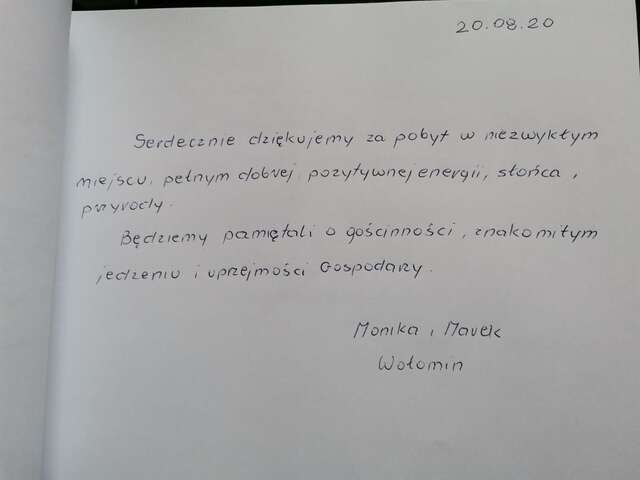 20.08.20
Serdecznie dziękujemy za pobyt w niezwykłym
miejscu, pełnym dobrej, pozytywnej energii, słońca,
przyrody.
Będziemy pamiętali o gościnności, znakomitym
jedzeniu i uprzejmości Gospodarzy.
Monika i Marek
Wołomin